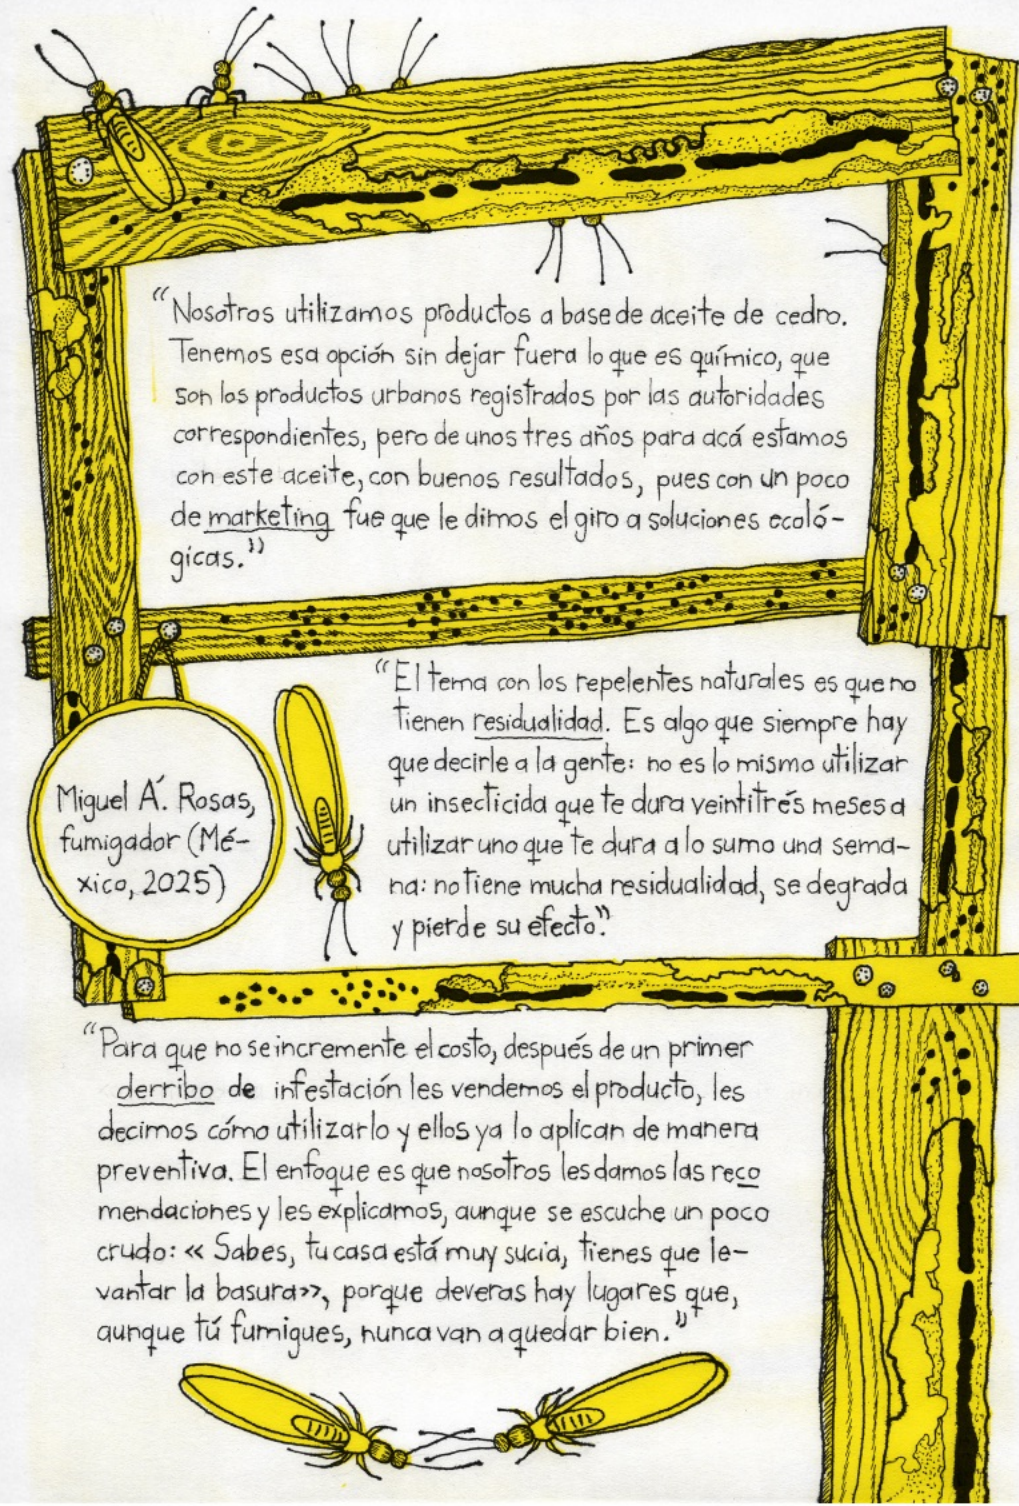 “Nosotros utilizamos productos a base de aceite de cedro.
Tenemos esa opción sin dejar fuera lo que es químico, que
son los productos urbanos registrados por las autoridades
correspondientes, pero de unos tres años para acá estamos
con este aceite, con buenos resultados, pues con un poco
de marketing fue que le dimos el giro a soluciones ecoló-
gicas.”
“El tema con los repelentes naturales es que no
tienen residualidad. Es algo que siempre hay
que decirle a la gente: no es lo mismo utilizar
un insecticida que te dura veintitrés meses a
utilizar uno que te dura a lo sumo una sema-
na: no tiene mucha residualidad, se degrada
y pierde su efecto.”
Miguel Á. Rosas,
fumigador (Mé-
xico, 2025)
“Para que no se incremente el costo, después de un primer
derribo de infestación les vendemos el producto, les
decimos cómo utilizarlo y ellos ya lo aplican de manera
preventiva. El enfoque es que nosotros les damos las reco
mendaciones y les explicamos, aunque se escuche un poco
crudo: «Sabes, tu casa está muy sucia, tienes que le-
vantar la basura», porque deveras hay lugares que,
aunque tú fumigues, nunca van a quedar bien.”